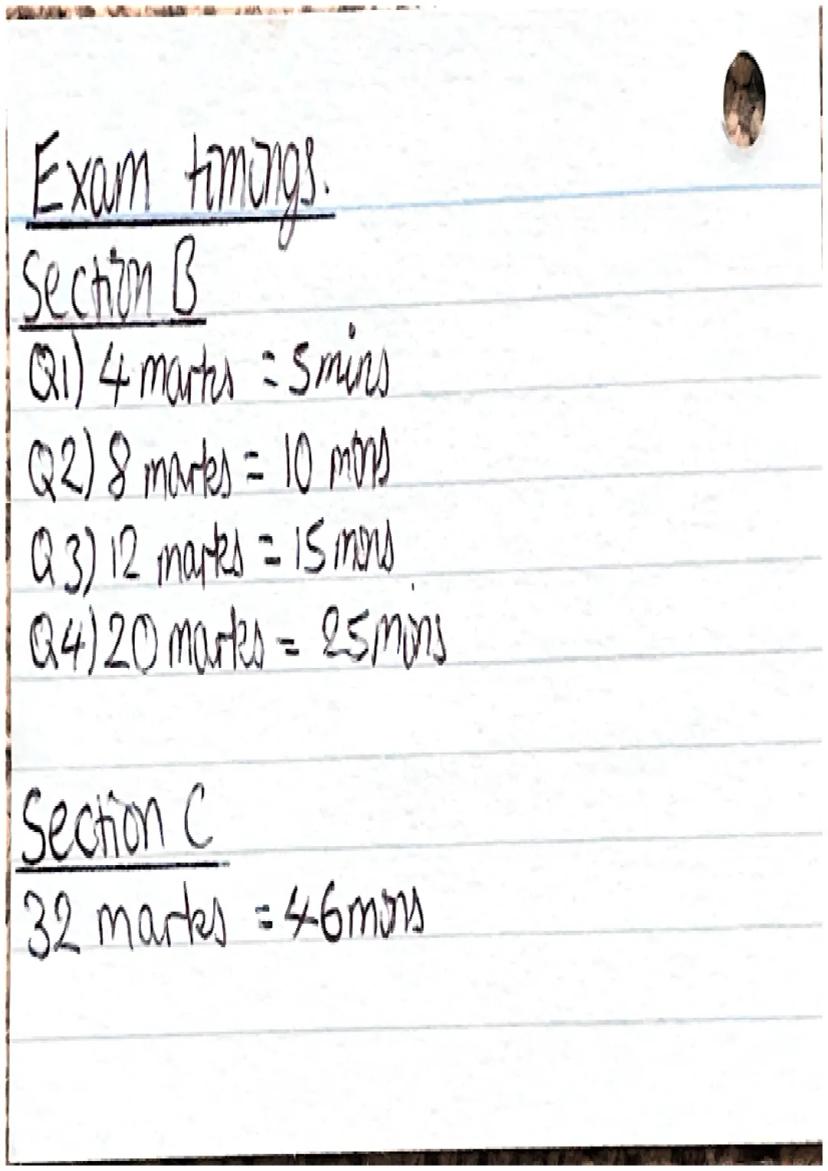 Exam timings.
Section B
Q1) 4 marks = 5mins
Q2) 8 marks = 10 mins
Q3) 12 marks = 15 mins
Q4) 20 marks = 25 mins
Section C
32 marks = 46 mins